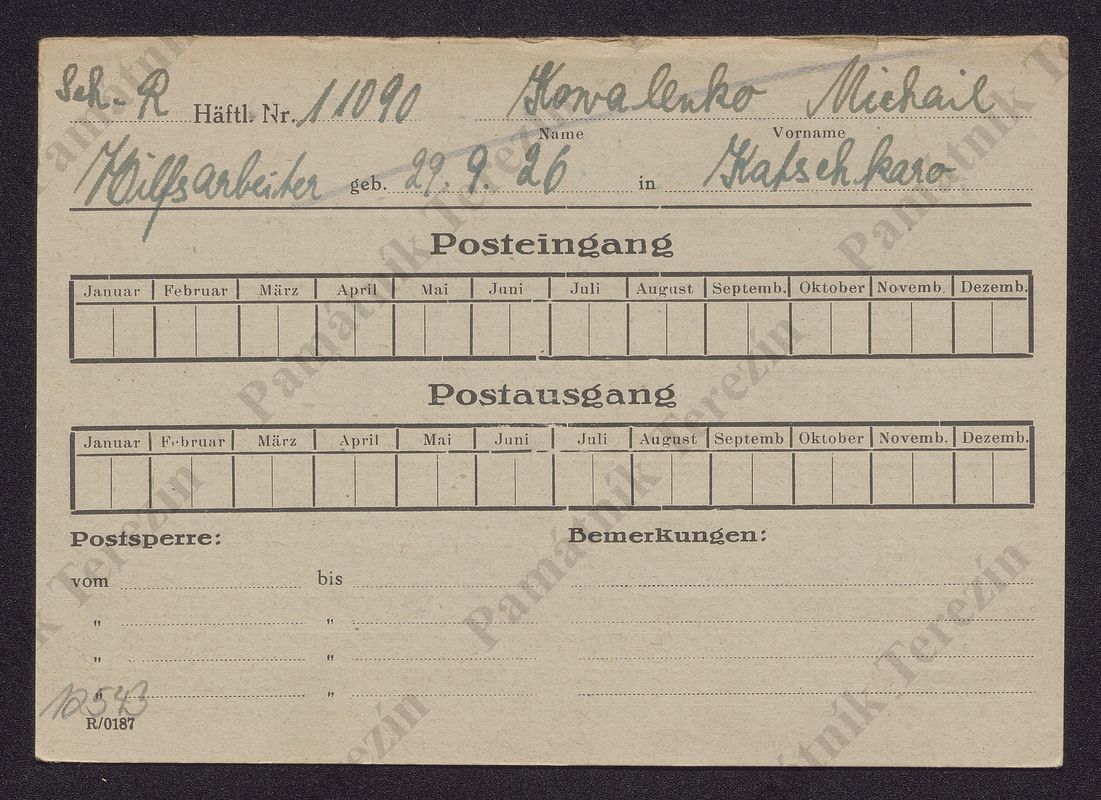 Sch-R Häftl. Nr. 11090 Kowalenko Michail
Name Vorname
Hilfsarbeiter geb. 29. 9. 26 in Katschkaro
Posteingang
Januar Februar März April Mai Juni Juli August Septemb. Oktober Novemb. Dezemb.
Postausgang
Januar Februar März April Mai Juni Juli August Septemb Oktober Novemb. Dezemb.
Postsperre: Bemerkungen:
vom bis
" "
" "
" "
10543
R/0187
Památník Terezín
Památník Terezín
Památník Terezín
Památník Terezín